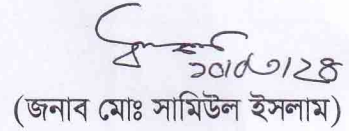 ১০/০৩/২৪
(জনাব মোঃ সামিউল ইসলাম)